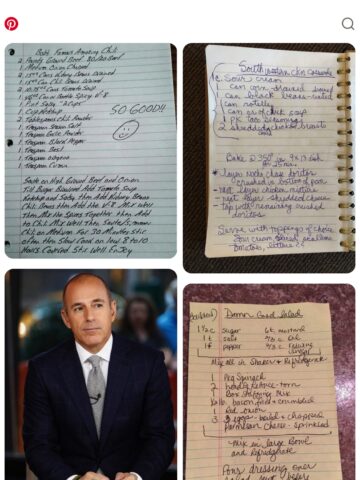 Bob's Famous Amazing Chili
2 Pounds Ground Beef 80/20 Beef
1 Medium Onion Chopped
2 15oz Cans Kidney Beans Drained
1 15oz Can Chili Beans Drained
2 10.75oz Cans Tomato Soup
1 46oz Can or Bottle Spicy V-8
1 Pint Salsy 2 Cups
1 Cup Ketchup
SO GOOD!!
2 Tablespoons Chili Powder
1 Teaspoon Season Salt
1 Teaspoon Garlic Powder
1 Teaspoon Black Pepper
1 Teaspoon Basil
1 Teaspoon Oregano
1 Teaspoon Cumin
Saute on High Ground Beef and Onion
Till Burger Browned Add Tomato Soup
Ketchup and Salsy then Add Kidney Beans
Chili Beans then Add the V-8 Mix Well
Then Mix the Spices together then Add
to Chili Mix Well Then Saute/Simmer
Chili on Medium For 30 Minutes stir
often then Slow Cook on low 8 to 10
Hours Covered stir Well Enjoy
Southwestern Chkn Casserole
Sour cream
1 can corn drained
1 can black beans
1 can rotella
1 can cr of chick soup
1 PK Taco Seasoning
2 shredded chicken breasts
Bake @ 350 in 9x13 dish
Layer Nacho cheese doritos
crushed in bottom of pan
next layer chicken mixture
next layer shredded cheese
Top with remaining crushed
doritos
Serve with toppings of choice
Sour cream
tomatoes, lettuce
Damn Good Salad
1/2 c sugar
1 t salt
1 t pepper
6 t. mustard
oil
vinegar
Mix all in Shaker & Refrigerate
1 Pkg Spinach
2 heads lettuce - torn
bacon fried & crumbled
1 Red onion
3 eggs boiled & chopped
Parmesan cheese
Mix in large Bowl
and Refrigerate
Pour dressing over
salad just before